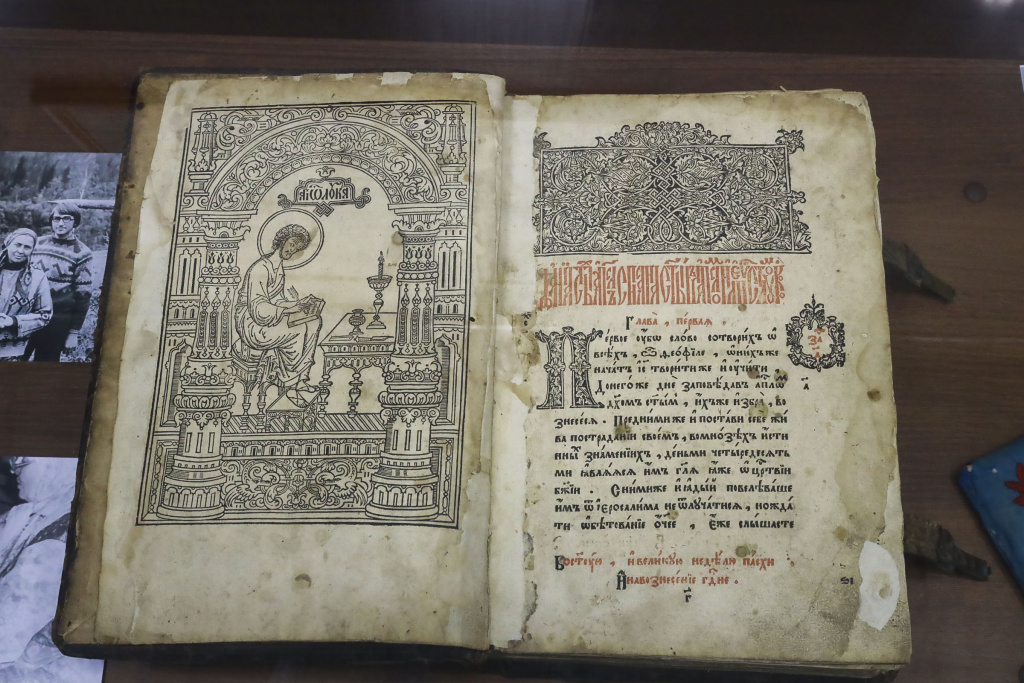 Глава, первая.
за҃
а҃
Первое ѹбѡ слово сотворихъ ѡ
всѣхъ, ѽ ѳеофіле, ѡнихъже
начатъ іс҃ творитиже и ѹчити
Донегоже дн҃е заповѣдавъ апⷭ҇лѡⷨ
дх҃омъ ст҃ымъ, ихъже избра, во
знесесѧ. Преднимиже и постави себе жи
ва пострадании своемъ, вомнозѣхъ исти
нныⷯ знаменїихъ, деньми четыредесѧть
ми ꙗвлѧѧсѧ имъ гл҃ѧ ꙗже ѡ црⷭ҇твїи
бж҃їи. Снимиже и ꙗдый повелѣваше
имъ ѿ іеросалима неѿлꙋчатисѧ, ножда
ти ѡбѣтованїе ѻч҃ее, Еже слышасте
Востꙋю, ивеликꙋю недѣлю пасхи,
Инавознесенїе гдⷭ҇не.
г҃